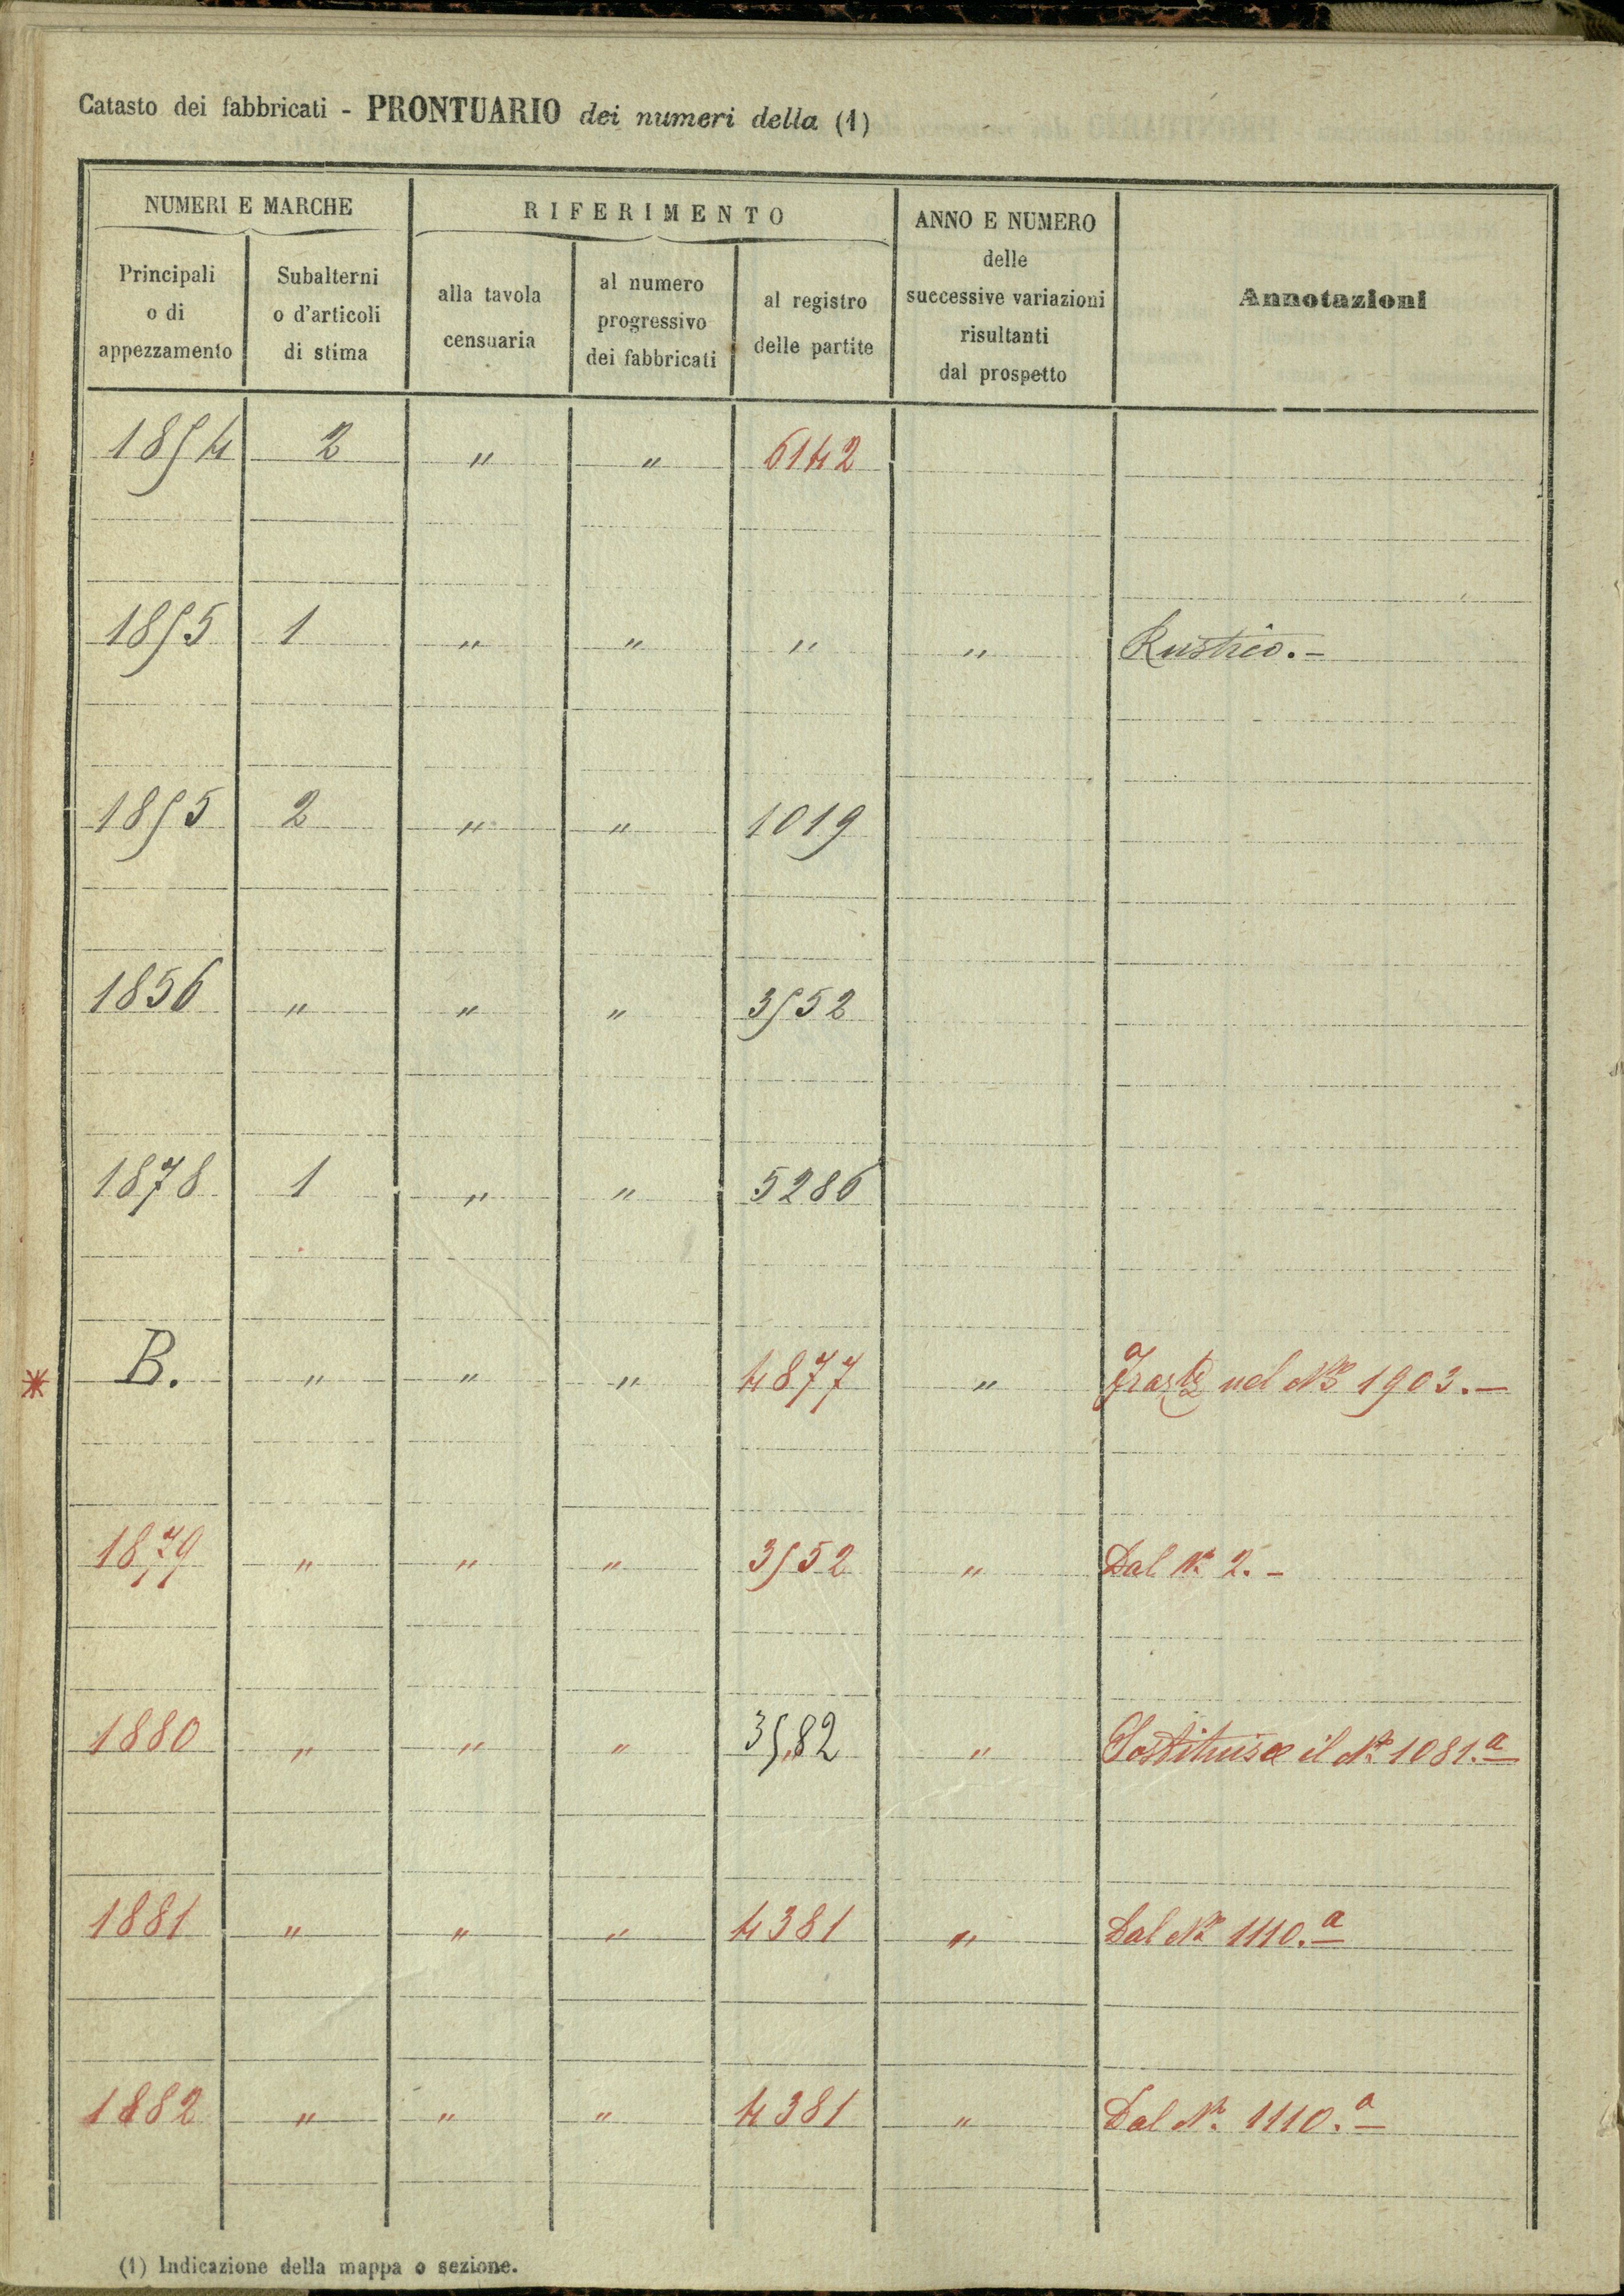 Catasto dei fabbricati - PRONTUARIO dei numeri della (1)
NUMERI E MARCHE
RIFERIMENTO
ANNO E NUMERO
delle
successive variazioni
risultanti
dal prospetto
Annotazioni
Principali
o di
appezzamento
Subalterni
o d'articoli
di stima
alla tavola
censuaria
al numero
progressivo
dei fabbricati
al registro
delle partite
1854 2 " " 6142
1855 1 " " " " Rustico.-
1855 2 " " 1019
1856 " " " 3552
1878 1 " " 5286
* B. " " " 4877 " nel N° 1903.-
1879 " " " 3552 " Dal N° 2.-
1880 " " " 3582 " Sostituisce il N° 1081.a
1881 " " " 4381 " Dal N° 1110.a
1882 " " " 4381 " Dal N° 1110.a
(1) Indicazione della mappa o sezione.